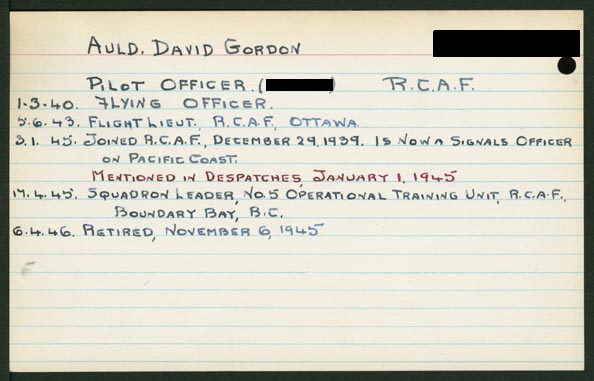 AULD, DAVID GORDON
PILOT OFFICER. ( ) R.C.A.F.
1.3.40. FLYING OFFICER.
5.6.43. FLIGHT LIEUT., R.C.A.F., OTTAWA
3.1.45. JOINED R.C.A.F., DECEMBER 29, 1939. IS NOW A SIGNALS OFFICER
ON PACIFIC COAST.
MENTIONED IN DESPATCHES, JANUARY 1, 1945
17.4.45. SQUADRON LEADER, NO.5 OPERATIONAL TRAINING UNIT, R.C.A.F.,
BOUNDARY BAY, B.C.
6.4.46. RETIRED, NOVEMBER 6, 1945